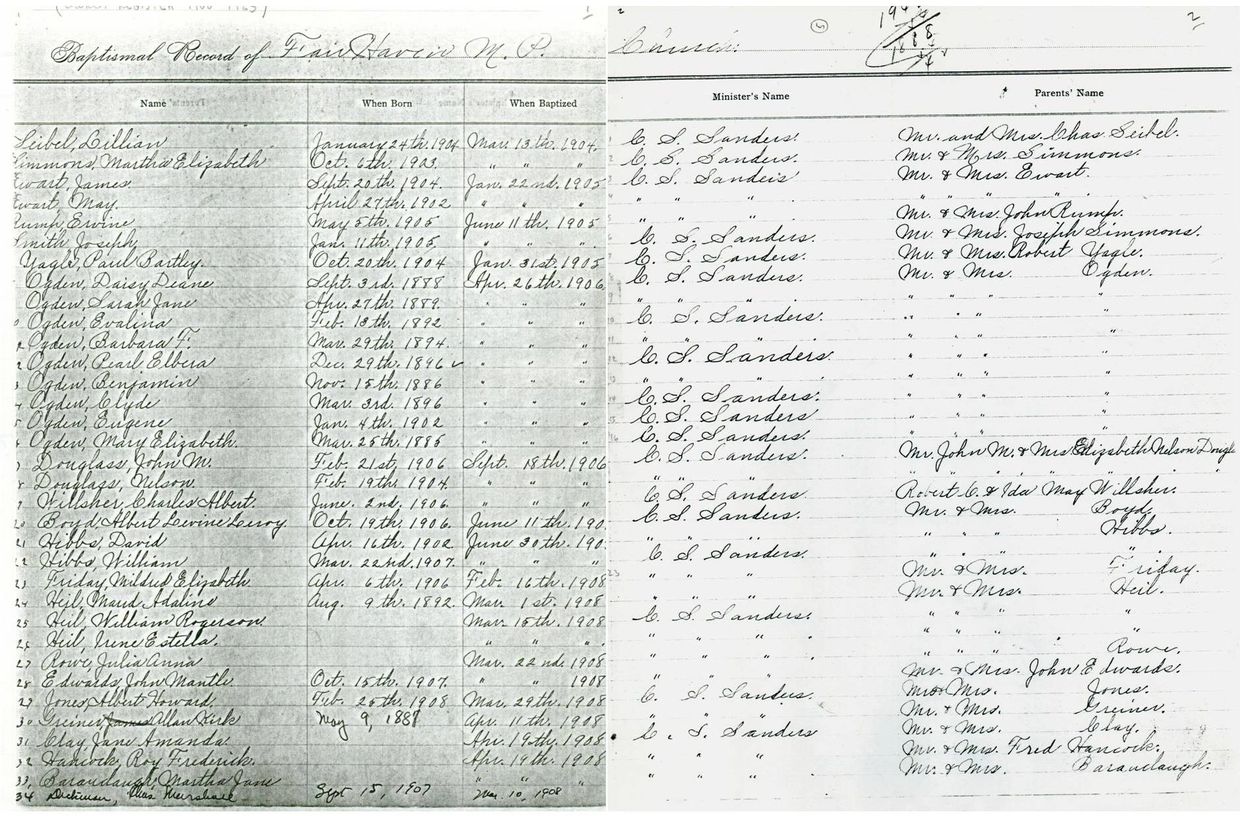 Baptismal Record of Fair Haven M. P.
Name When Born When Baptized
Seibel, Lillian January 24th 1904 Mar. 13th. 1904.
Simmons, Martha Elizabeth Oct. 6th 1903 " " "
Ewart, James. Sept. 20th. 1904. Jan. 22nd. 1905
Ewart, May. April 27th. 1902 " " "
Rump, Ervine May 5th. 1905 June 11th. 1905
Smith Joseph, Jan. 11th. 1905 " " "
Yagle, Paul Bartley. Oct. 20th. 1904 Jan. 31st. 1905
Ogden, Daisy Deane Sept. 3rd. 1888 Apr. 26th. 1906
Ogden, Sarah Jane Apr. 27th. 1889 " " "
Ogden, Evalina Feb. 13th. 1892 " " "
Ogden, Barbara F. Mar. 29th. 1894. " " "
Ogden, Pearl Elbera Dec. 29th. 1896 ✓ " " "
Ogden, Benjamin Nov. 15th 1886 " " "
Ogden, Clyde Mar. 3rd. 1896 " " "
Ogden, Eugene Jan. 4th. 1902 " " "
Ogden, Mary Elizabeth. Mar. 25th. 1885 " " "
Douglass, John M. Feb. 21st. 1906 Sept. 18th. 1906
Douglass, Nelson. Feb. 19th 1904 " " "
Willsher, Charles Albert. June. 2nd. 1906
20 Boyd Albert Levine Leroy. Oct. 19th. 1906. June 11th. 190
21 Hibbs, David Apr. 16th. 1902 June 30th. 190
Hibbs, William Mar. 22nd. 1907. " " "
23 Friday Mildred Elizabeth. Apr. 6th. 1906 Feb. 16th. 1908
24 Heil, Maud Adaline Aug. 9th. 1892. Mar. 1st. 1908
25 Heil William Rogerson Mar. 15th 1908
26 Heil, Irene Estella. " " "
27 Rowe Julia Anna Mar. 22nd. 1908
28 Edwards, John Mantle Oct. 15th. 1907. " 1908
29 Jones Albert Howard. Feb. 25th. 1908 Mar. 29th. 1908
30 Greiner James Allan Kirk May 9, 1888 Apr. 11th. 1908
31 Clay Jane Amanda Apr. 19th. 1908
32 Hancock, Roy Frederick. Apr. 19th. 1908
33, Martha Jane " " "
34 Sept 15, 1907 Mar 10, 1908
2
Minister's Name Parents' Name
C. S. Sanders. Mr. and Mrs. Chas. Seibel.
C. S. Sanders. Mr. & Mrs. Simmons.
C. S. Sanders Mr. & Mrs. Ewart.
" " " " " " "
Mr. & Mrs. John Rump.
C. S. Sanders. Mr. & Mrs. Joseph Simmons.
C. S. Sanders. Mr. & Mrs. Robert Yagle.
C. S. Sanders. Mr. & Mrs. Ogden.
" " " " " " "
C. S. Sanders. " " " "
" " " " " " "
C. S. Sanders. " " " "
" " " " " " "
C. S. Sanders. " " " "
C. S. Sanders " " " "
C. S. Sanders. " " " "
C. S. Sanders. Mr. John M. & Mrs Elizabeth Nelson Dougl
" " " " " " "
C. S. Sanders Robert C. & Ida May Willsher.
C. S. Sanders. Mr. & Mrs. Boyd.
" " " Hibbs.
C. S. Sanders. " " " "
" " " Mr. & Mrs. Friday.
" " " Mr. & Mrs. Heil.
C. S. Sanders. " " " "
" " " " " " "
" " " " " " Rowe.
" " " Mr. & Mrs. John Edwards.
C. S. Sanders. Mr & Mrs. Jones.
" " " Mr. & Mrs. Greiner.
C. S. Sanders Mr. & Mrs. Clay.
" " " Mr. & Mrs. Fred Hancock.
" " " Mr. & Mrs.